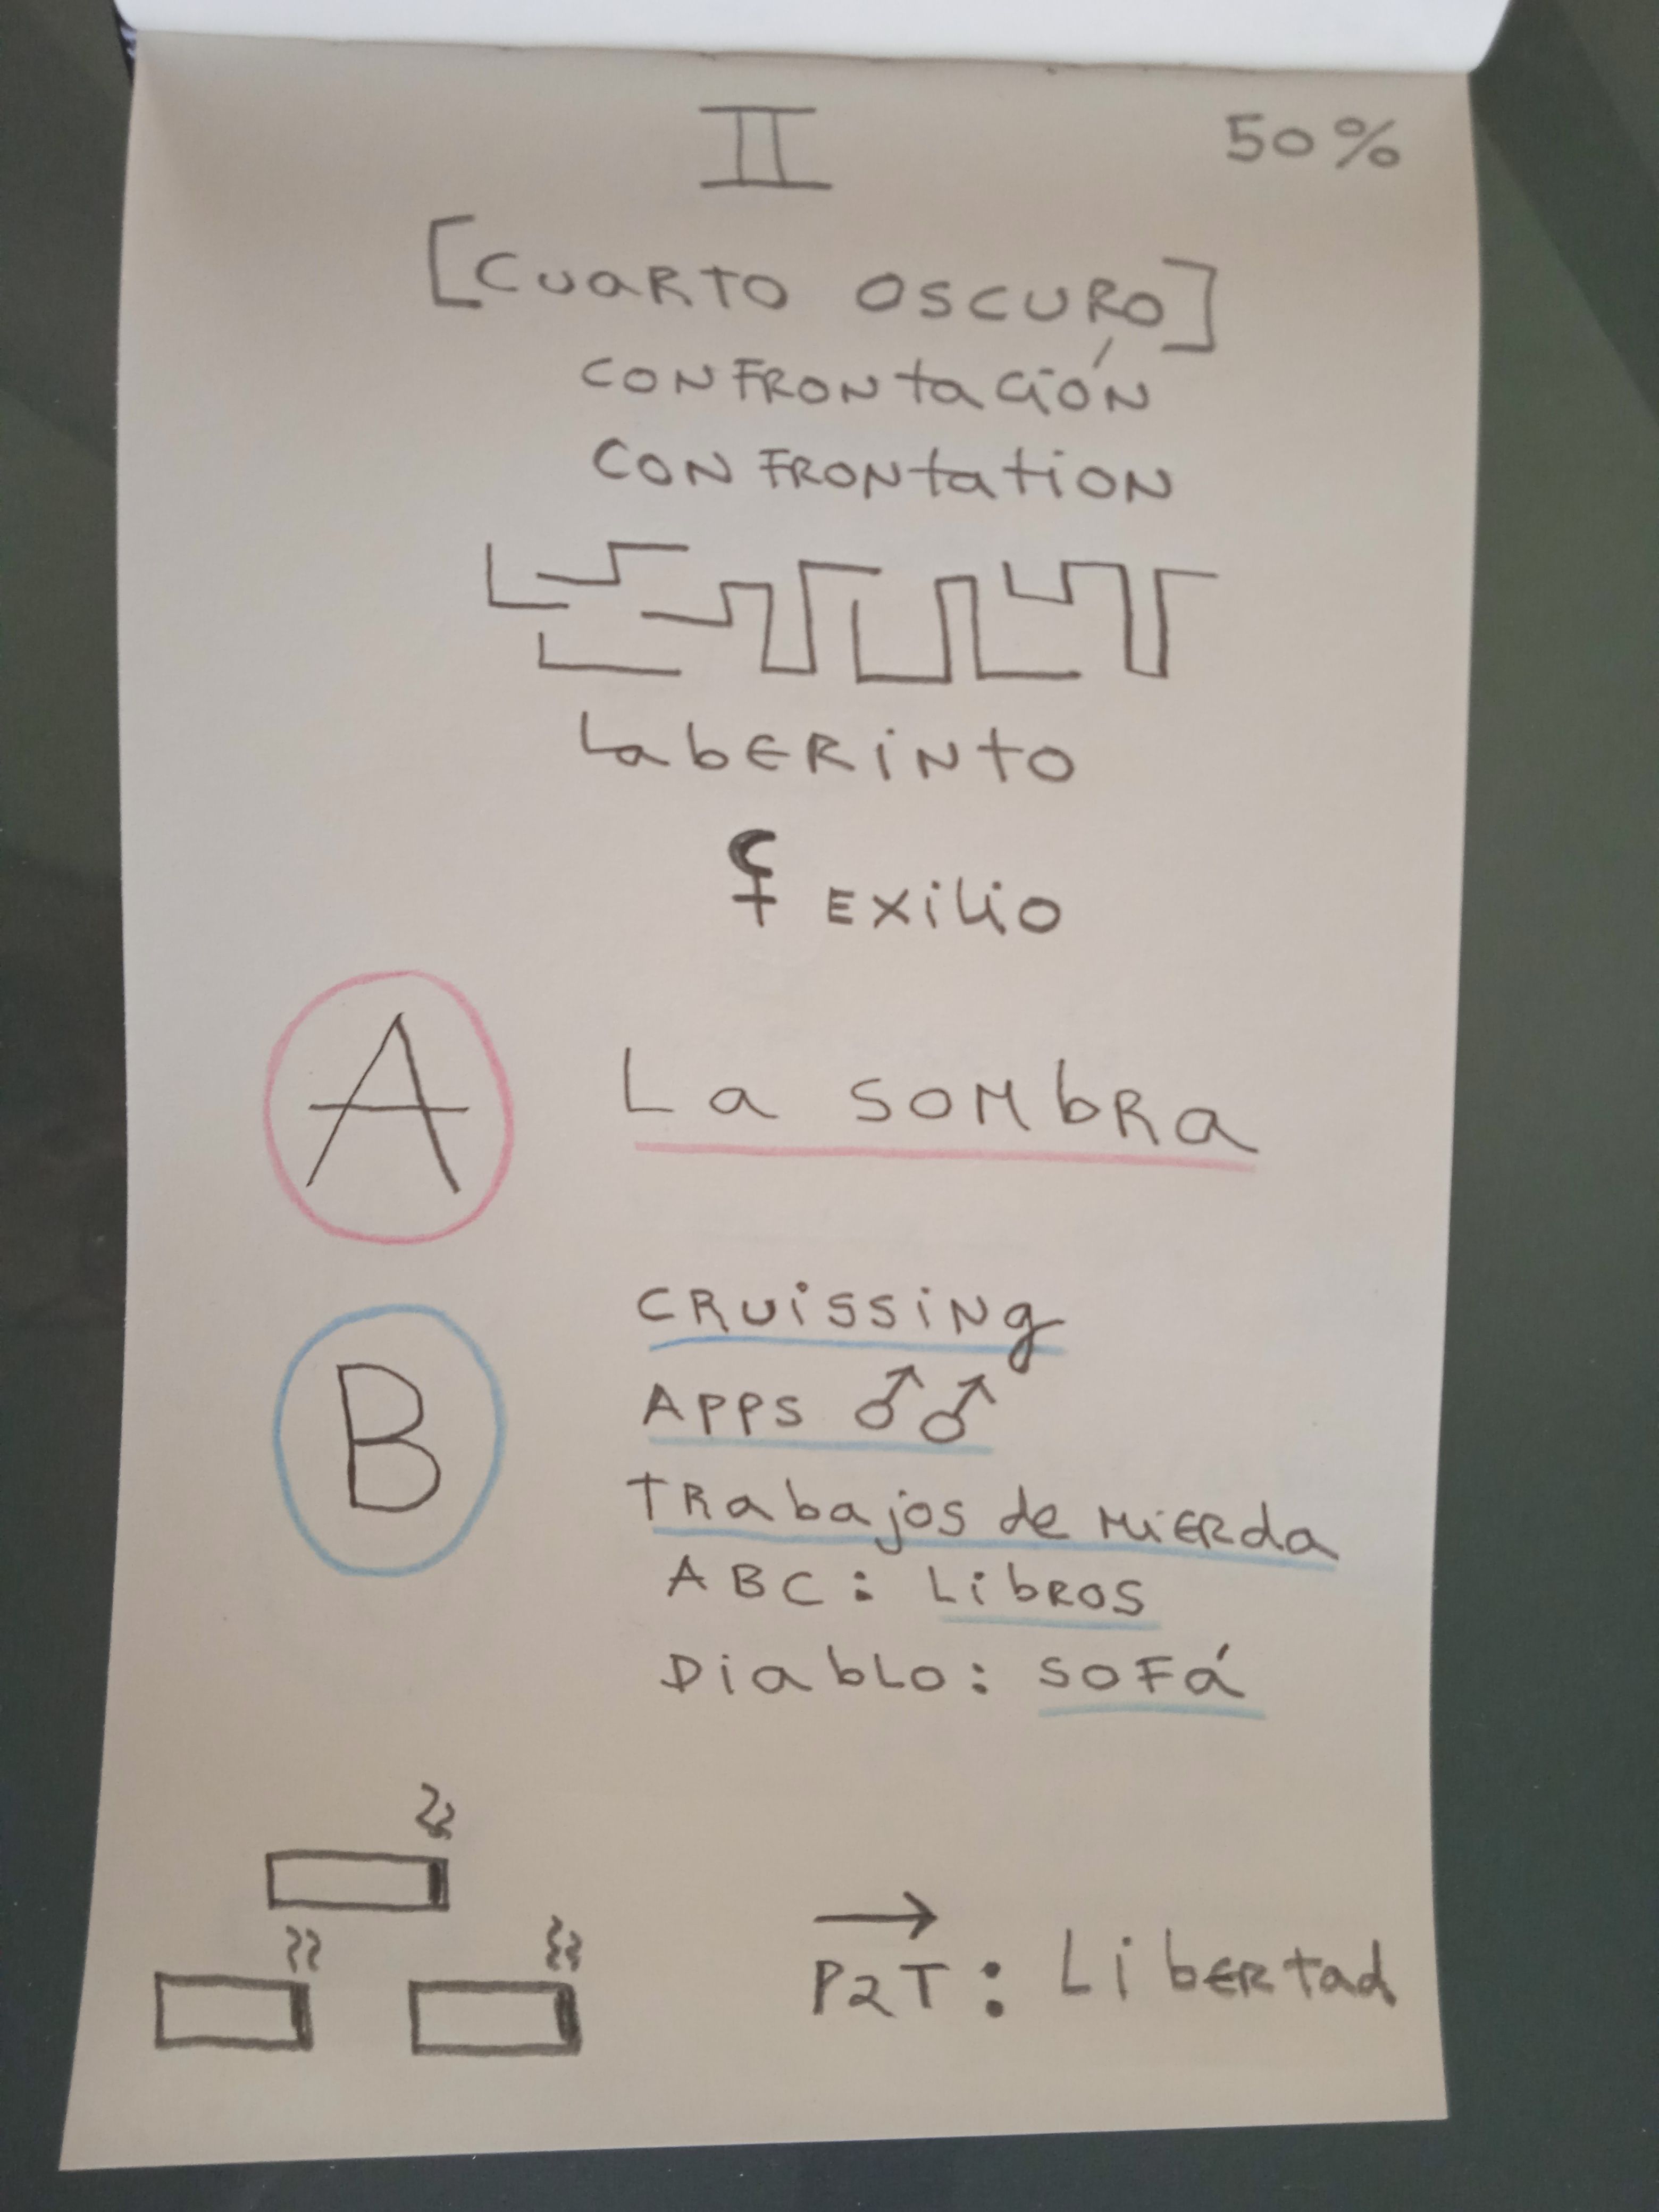 II
50%
[CUARTO OSCURO]
CONFRONtaCIÓN
CONFRONtatION
LabERiNto
⚸ EXiLio
A
La SOMbRa
B
CRUiSSiNg
APPS ♂♂
TRabajos de MiERda
ABC: LibROS
DiabLo: SOFá
→
P2T: LibERtad